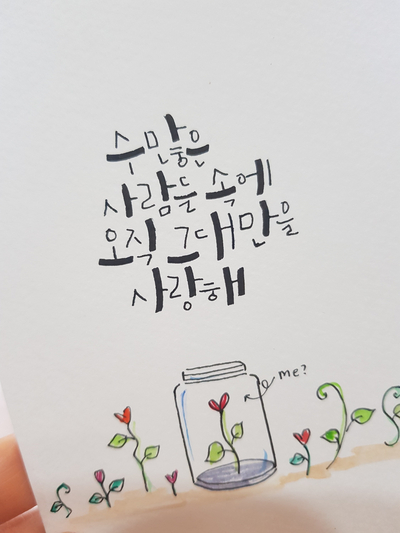 수만많은
사람들 속에
오직 그대만을
사랑해
me?